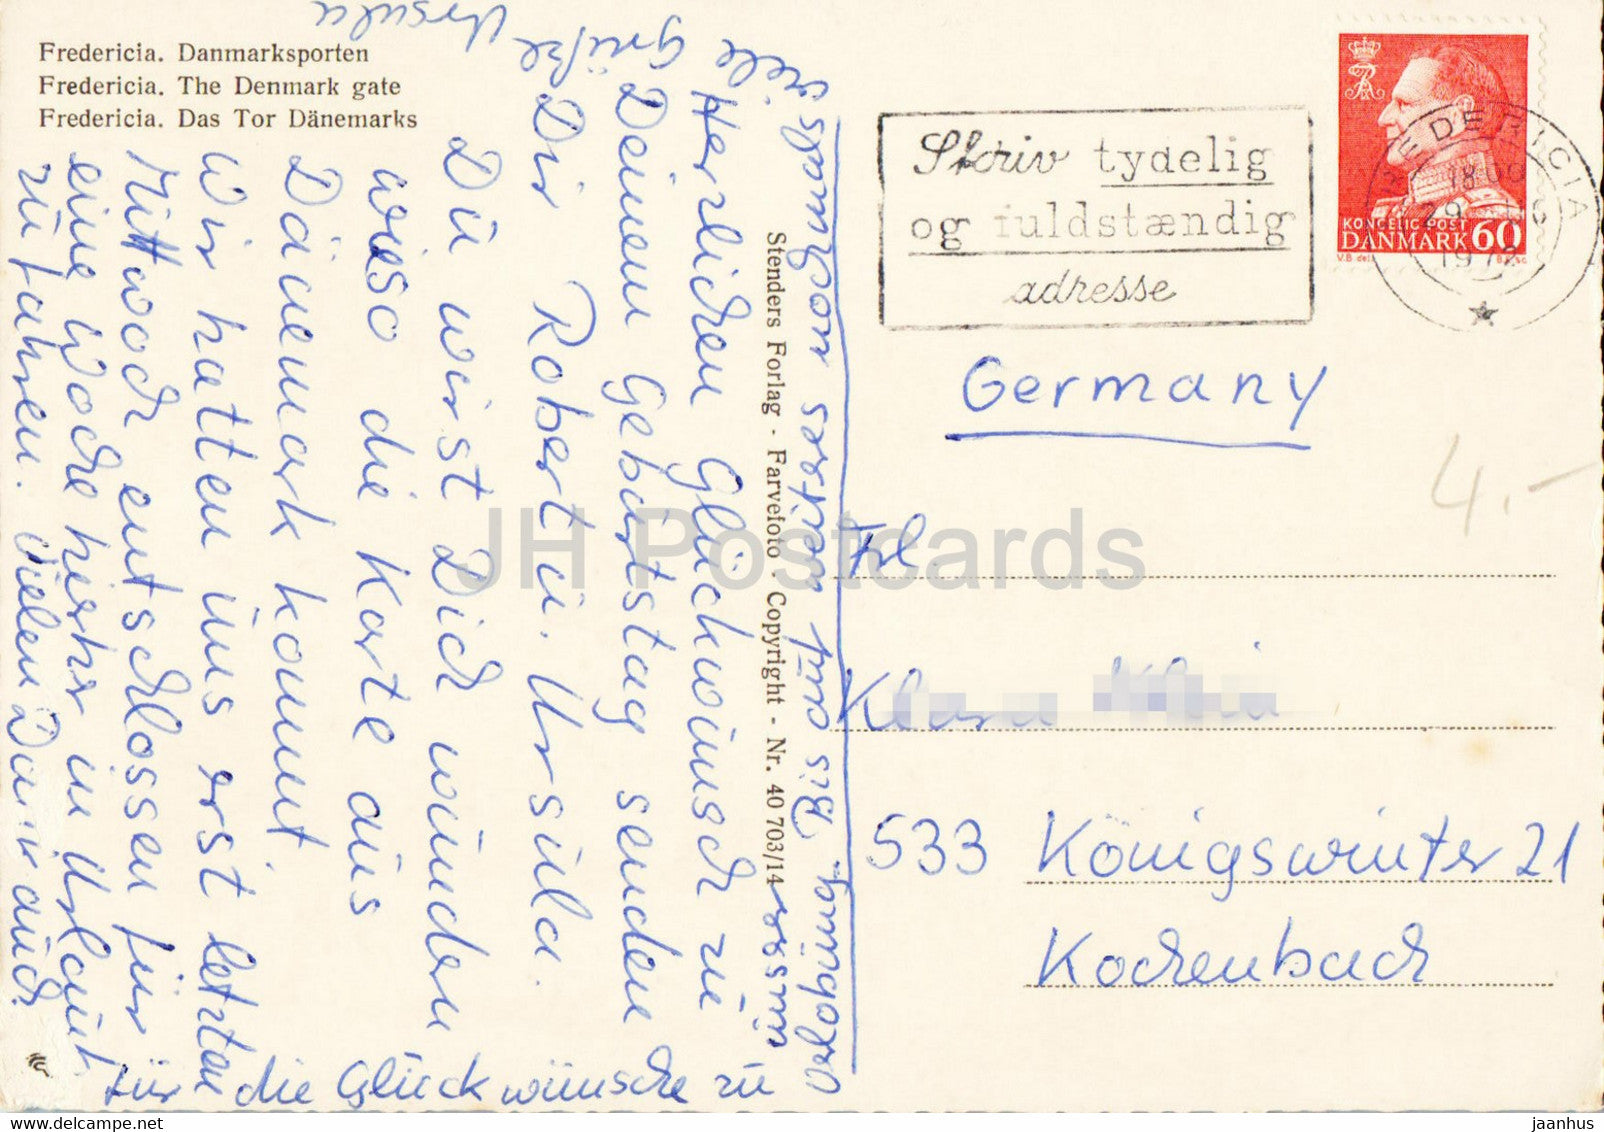 Fredericia. Danmarksporten
Fredericia. The Denmark gate
Fredericia. Das Tor Dänemarks
Herzlichen Glückwunsch zu
Deinem Geburtstag senden
Dir Robert u. Ursula.
Du wirst Dich wundern
wieso die Karte aus
Dänemark kommt.
Wir hatten uns erst letzten
Mittwoch entschlossen für
eine Woche hierher in Urlaub
zu fahren. Vielen Dank auch
für die Glückwünsche zu
unserer
Verlobung. Bis auf weiteres noch von uns
viele
Grüße
Ursula
Stenders Forlag - Farvefoto - Copyright - Nr. 40 703/14
Skriv tydelig
og fuldstændig
adresse
FREDERICIA
18.00
29
1972
KONGELIG POST
DANMARK 60
V.B. del.
Germany
4.-
Frl.
Klara Klein
533 Königswinter 21
Kochenbach
JH Postcards
www.delcampe.net
jaanhus